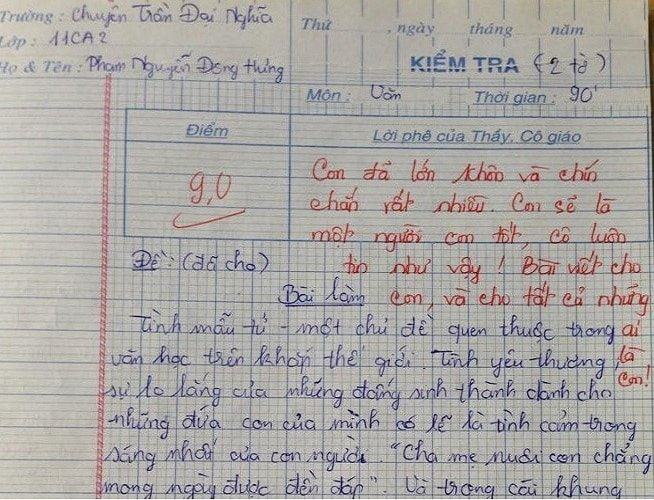 Trường : Chuyên Trần Đại Nghĩa
Thứ , ngày tháng năm
Lớp : 11CA2
Họ & Tên : Phạm Nguyễn Đông Hưng
KIỂM TRA (2 tờ)
Môn : Văn Thời gian : 90'
Điểm
Lời phê của Thầy, Cô giáo
9,0
Con đã lớn khôn và chín
chắn rất nhiều. Con sẽ là
một người con tốt, cô luôn
tin như vậy ! Bài viết cho
con, và cho tất cả những
ai
là
con!
Đề : (đã cho)
Bài làm
Tình mẫu tử - một chủ đề quen thuộc trong
văn học trên khắp thế giới. Tình yêu thương,
sự lo lắng của những đấng sinh thành dành cho
những đứa con của mình có lẽ là tình cảm trong
sáng nhất của con người. "Cha mẹ nuôi con chẳng
mong ngày được đền đáp". Và trong cái khung